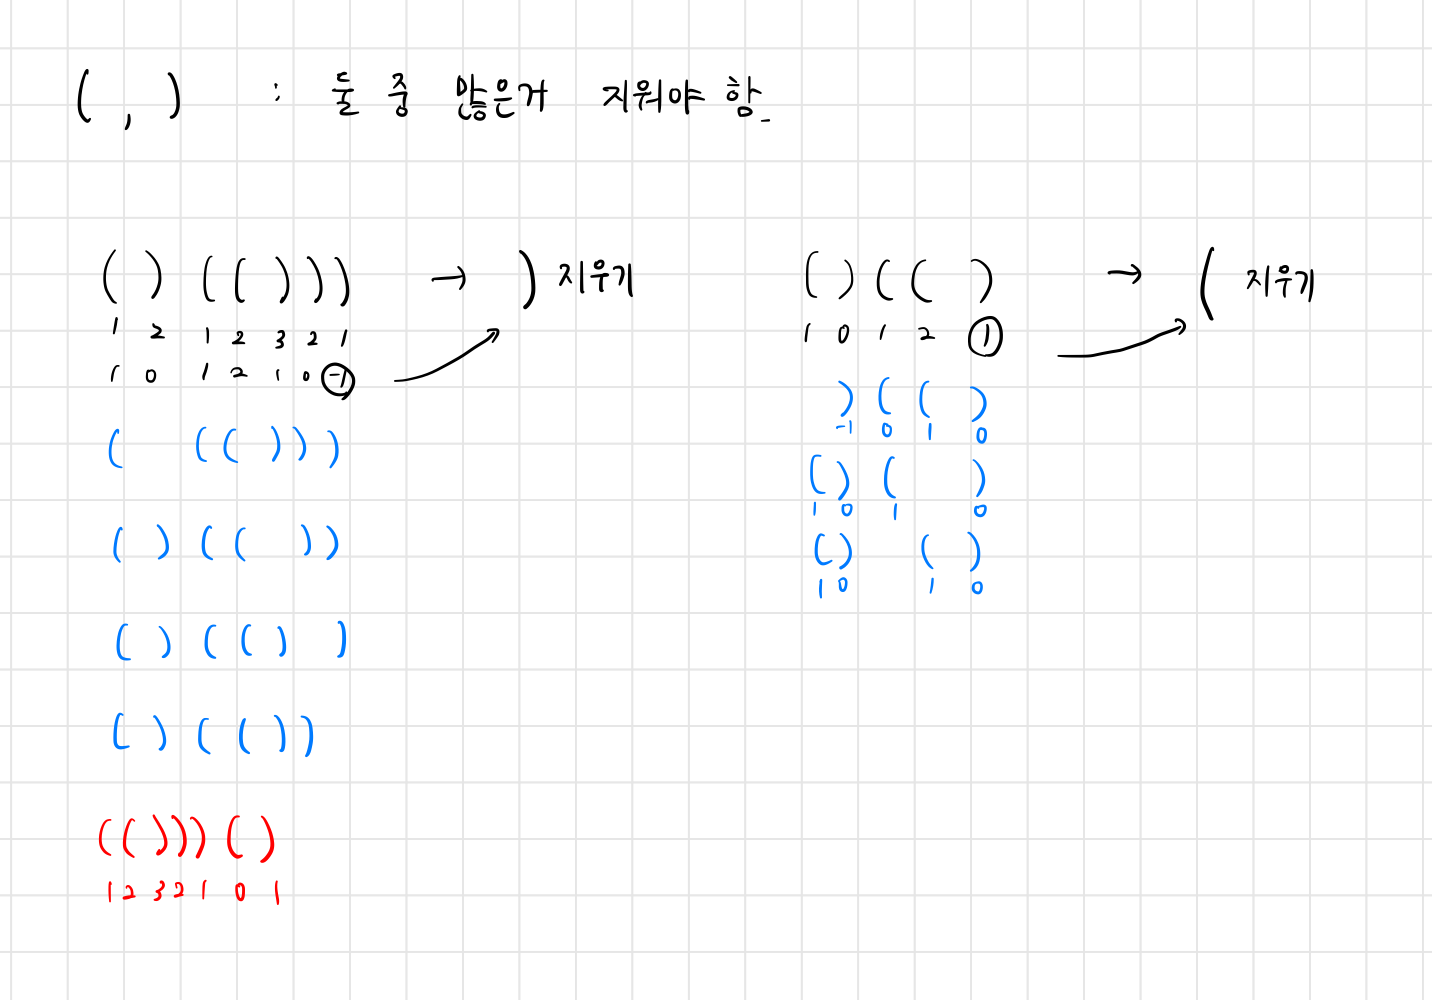 ( , ) : 둘 중 많은거 지워야 함.
( ) ( ( ) ) ) → ) 지우기
1 2 1 2 3 2 1
1 0 1 2 1 0 -1
( ( ( ) ) )
( ) ( ( ) )
( ) ( ( ) )
( ) ( ( ) )
( ( ) ) ) ( )
1 2 3 2 1 0 1
( ) ( ( ) → ( 지우기
1 0 1 2 1
) ( ( )
-1 0 1 0
( ) ( )
1 0 1 0
( ) ( )
1 0 1 0